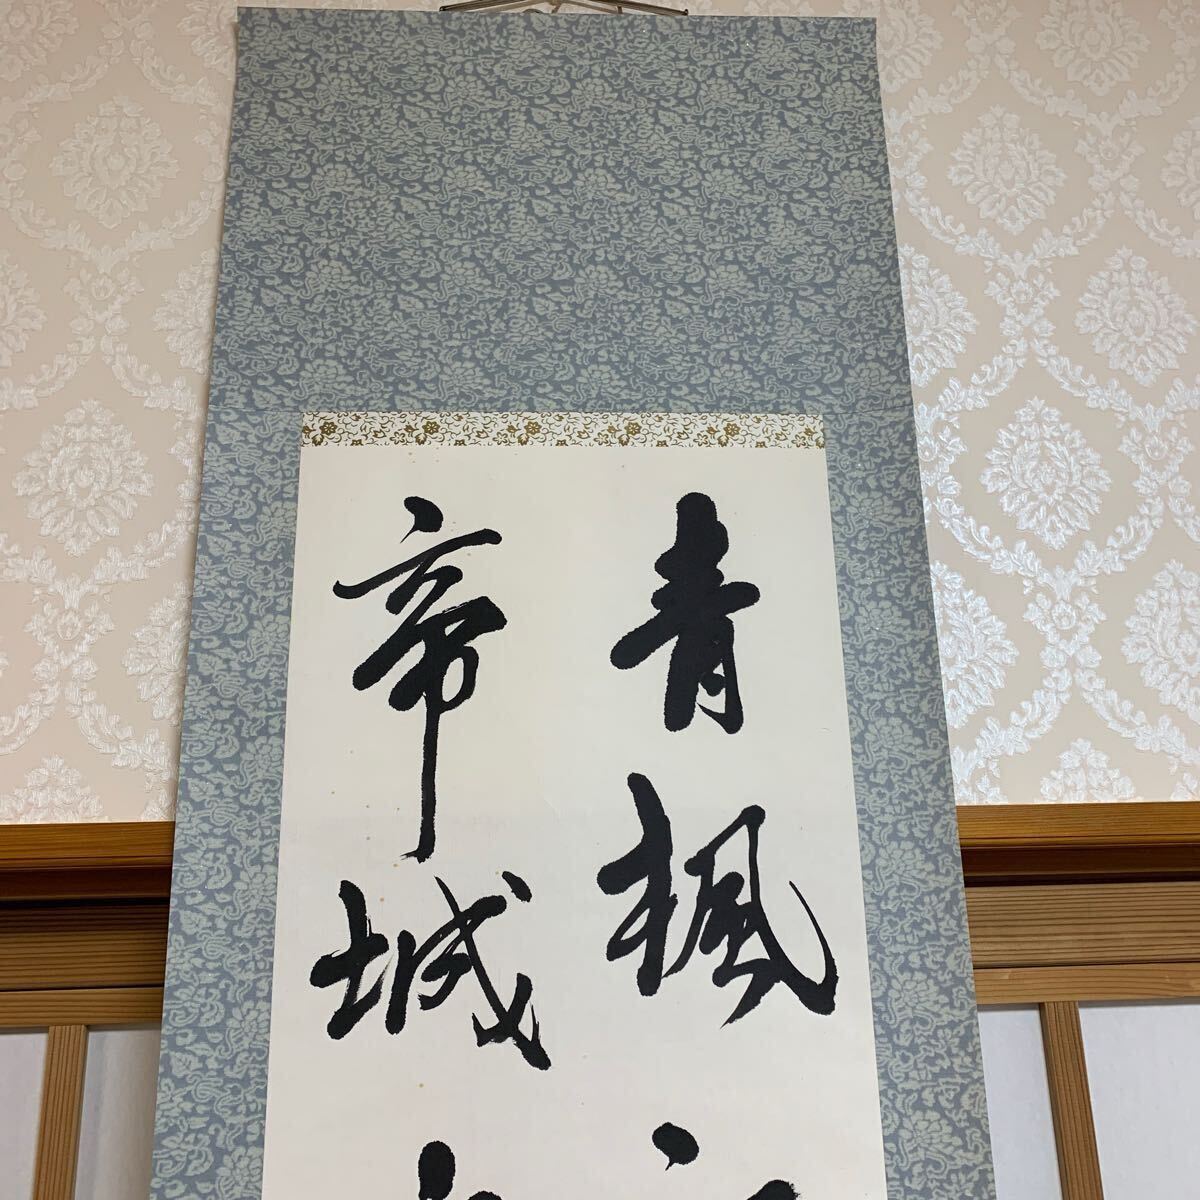 青楓
帝城